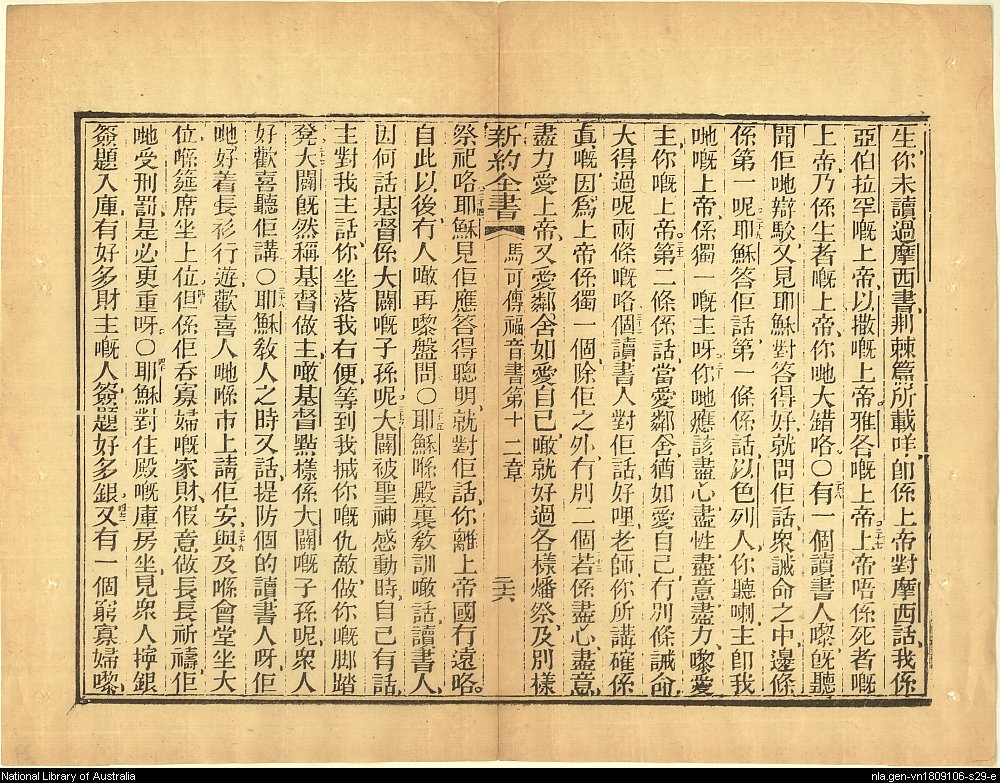 生你未讀過摩西書、荆棘篇所載咩、卽係上帝對摩西話、我係
亞伯拉罕嘅上帝、以撒嘅上帝、雅各嘅上帝、二十七上帝唔係死者嘅
上帝、乃係生者嘅上帝、你哋大錯咯○二十八有一個讀書人嚟、旣聽
聞佢哋辯駁、又見耶穌對答得好、就問佢話、衆誡命之中、邊條
係第一呢、二十九耶穌答佢話、第一條係話、以色列人、你聽喇、主卽我
哋嘅上帝、係獨一嘅主呀、三十你哋應該盡心盡性盡意盡力、嚟愛
主你嘅上帝、三十一第二條係話、當愛鄰舍、猶如愛自己、冇別條誡命
大得過呢兩條嘅咯、三十二個讀書人對佢話、好哩、老師、你所講確係
眞嘅、因爲上帝係獨一個、除佢之外、冇別二個、三十三若係盡心盡意、
盡力愛上帝、又愛鄰舍如愛自己、噉就好過各樣燔祭、及別樣
新約全書 馬可傳福音書第十二章 三六
祭祀咯、三十四耶穌見佢應答得聰明、就對佢話、你離上帝國冇遠咯。
自此以後、冇人噉再嚟盤問○三十五耶穌喺殿裏敎訓、噉話、讀書人、
因何話基督係大闢嘅子孫呢、三十六大闢被聖神感動時、自己有話、
主對我主話、你坐落我右便、等到我搣你嘅仇敵、做你嘅脚踏
凳、三十七大闢旣然稱基督做主、噉基督點樣係大闢嘅子孫呢、衆人
好歡喜聽佢講○三十八耶穌敎人之時、又話、提防個的讀書人呀、佢
哋好着長衫行遊、歡喜人哋喺市上請佢安、三十九與及喺會堂坐大
位、喺筵席坐上位、四十但係佢吞寡婦嘅家財、假意做長長祈禱、佢
哋受刑罰、是必更重呀○四十一耶穌對住殿嘅庫房坐、見衆人擰銀
簽題入庫、有好多財主嘅人、簽題好多銀、四十二又有一個窮寡婦嚟、
National Library of Australia
nla.gen-vn1809106-s29-e